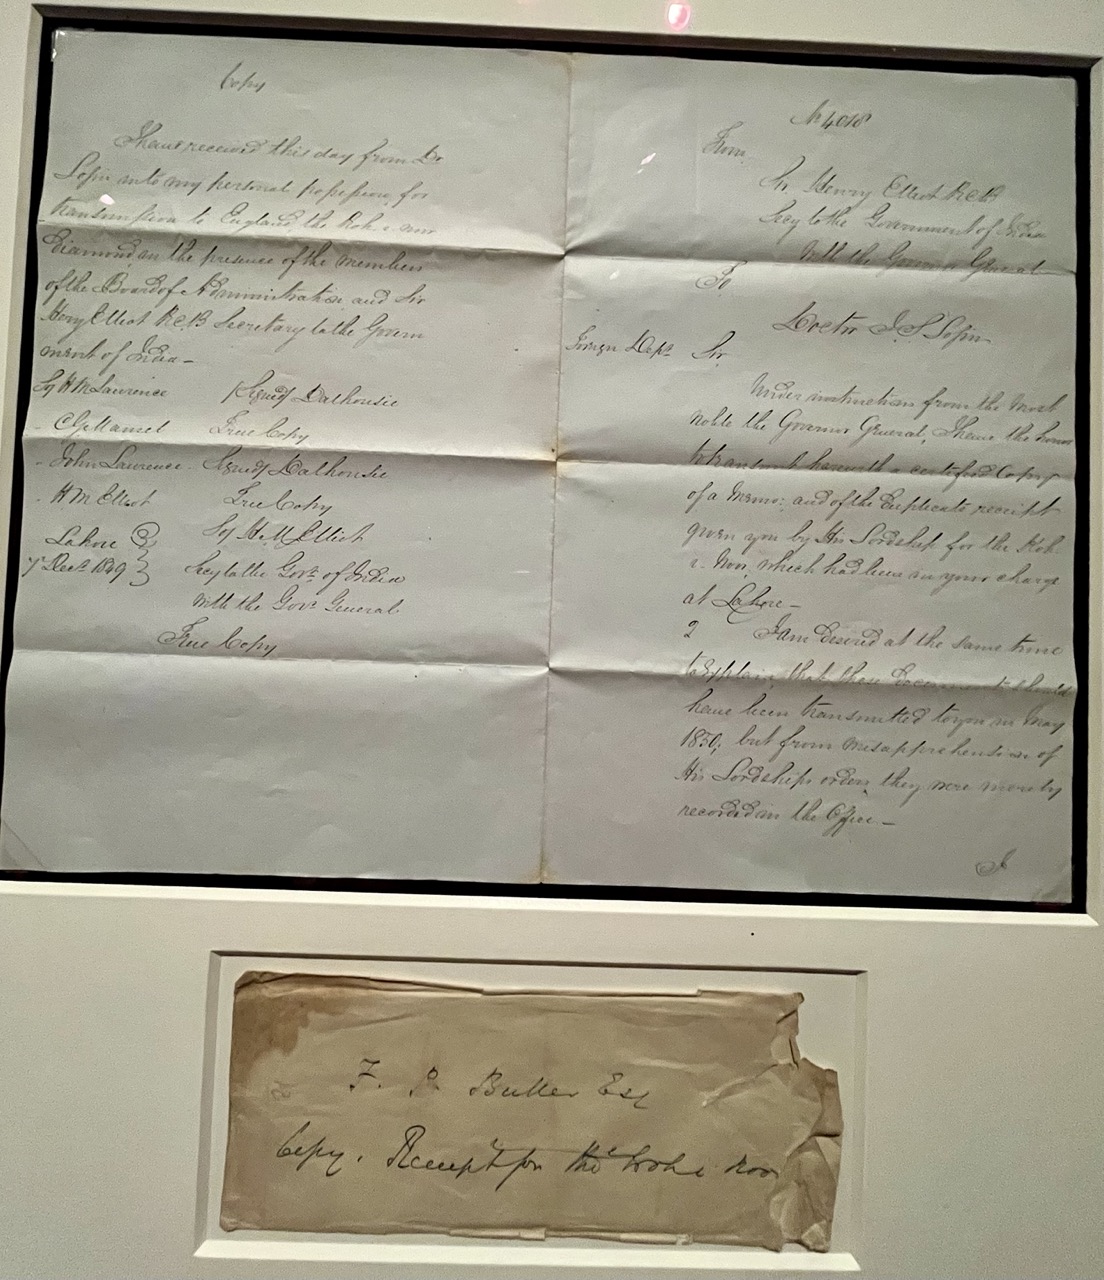 Copy
I have received this day from Dr
Login into my personal possession for
transmission to England the Koh-i-noor
Diamond in the presence of the members
of the Board of Administration, and Sir
Henry Elliot K.C.B Secretary to the Govern
ment of India -
Sd H M Lawrence
- C G Mansel
- John Lawrence
- H M Elliot
Lahore
7 Decr 1849
(Signed) Dalhousie
True Copy
Signed Dalhousie
True Copy
Sd H. M. Elliot
Secy to the Govt of India
with the Govr General
True Copy
No 4018
From
Sir Henry Elliot K C B
Secy to the Government of India
With the Governor General
To
Doctor J S Login
Foreign Dept
Sir
Under instruction from the Most
noble the Governor General, I have the honor
to transmit herewith a certified Copy
of a Memo: and of the Duplicate receipt
given you by His Lordship for the Koh
i. Noor, which had been in your charge
at Lahore -
2 I am desired at the same time
to explain, that these documents should
have been transmitted to you in May
1850, but from misapprehension of
His Lordships orders, they were merely
recorded in the Office -
I
F. P. Buller Esq
Copy. Receipt for the Koh i noor